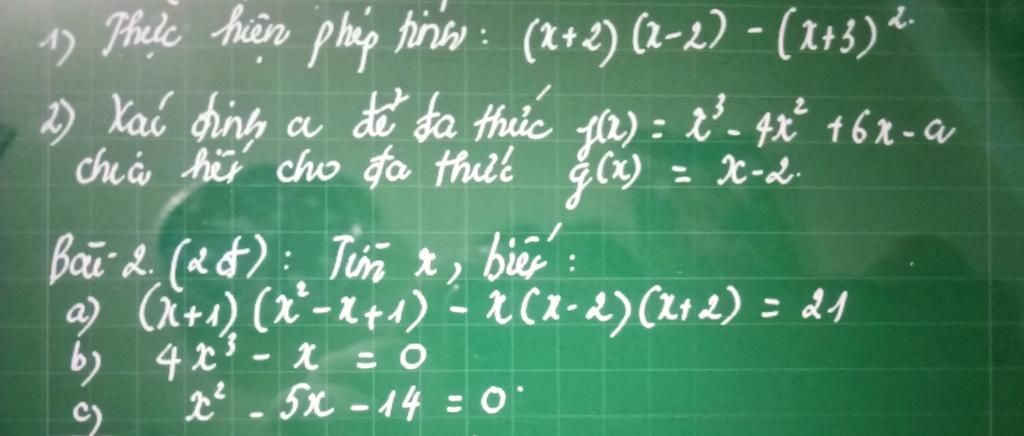 1) Thực hiện phép tính: (x+2)(x-2) - (x+3)².
2) Xác định a để đa thức f(x) = x³ - 4x² + 6x - a
chia hết cho đa thức g(x) = x-2.
Bài 2. (2đ): Tìm x, biết:
a) (x+1)(x²-x+1) - x(x-2)(x+2) = 21
b) 4x³ - x = 0
c) x² - 5x - 14 = 0